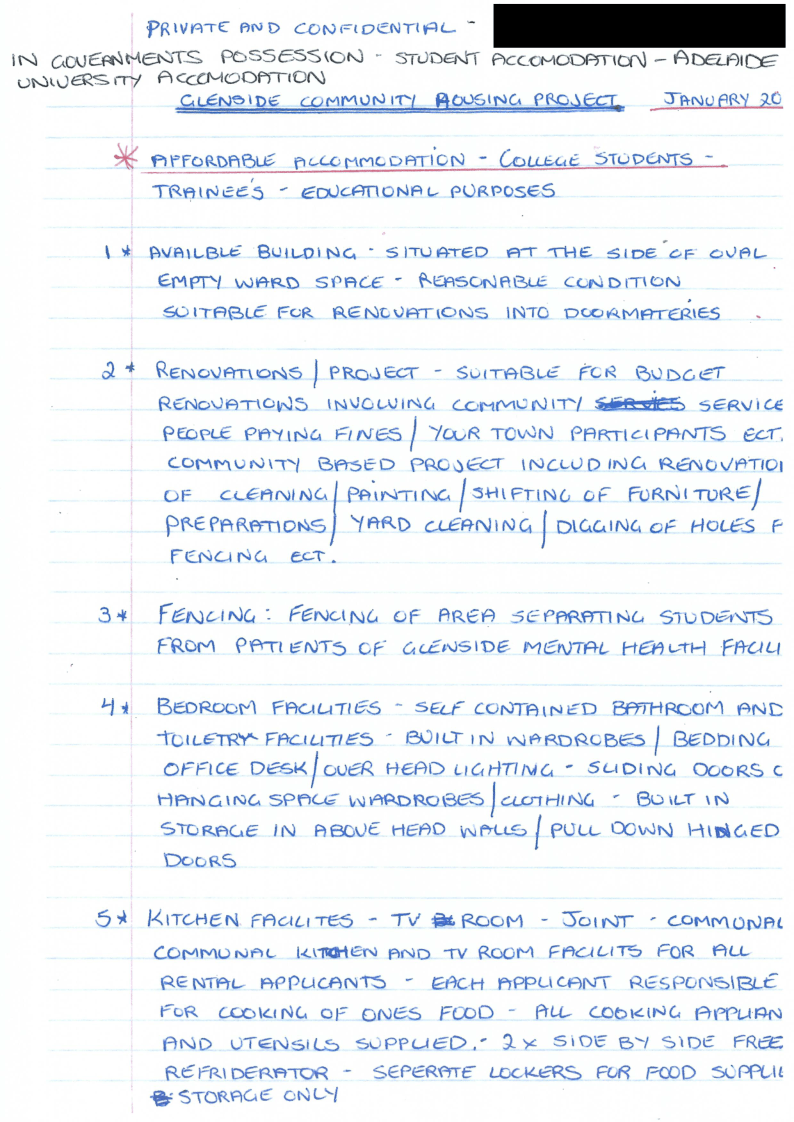 PRIVATE AND CONFIDENTIAL -
IN GOVERNMENTS POSSESSION - STUDENT ACCOMODATION - ADELAIDE
UNIVERSITY ACCOMODATION
GLENSIDE COMMUNITY HOUSING PROJECT JANUARY 20
* AFFORDABLE ACCOMMODATION - COLLEGE STUDENTS -
TRAINEE'S - EDUCATIONAL PURPOSES
1 * AVAILBLE BUILDING - SITUATED AT THE SIDE OF OVAL
EMPTY WARD SPACE - REASONABLE CONDITION
SUITABLE FOR RENOVATIONS INTO DOORMATERIES
2 * RENOVATIONS / PROJECT - SUITABLE FOR BUDGET
RENOVATIONS INVOLVING COMMUNITY SERVICE
PEOPLE PAYING FINES / YOUR TOWN PARTICIPANTS ECT.
COMMUNITY BASED PROJECT INCLUDING RENOVATIO
OF CLEANING / PAINTING / SHIFTING OF FURNITURE /
PREPARATIONS / YARD CLEANING / DIGGING OF HOLES F
FENCING ECT.
3 * FENCING : FENCING OF AREA SEPARATING STUDENTS
FROM PATIENTS OF GLENSIDE MENTAL HEALTH FACILI
4 * BEDROOM FACILITIES - SELF CONTAINED BATHROOM AND
TOILETRY FACILITIES - BUILT IN WARDROBES / BEDDING
OFFICE DESK / OVER HEAD LIGHTING - SLIDING DOORS O
HANGING SPACE WARDROBES / CLOTHING - BUILT IN
STORAGE IN ABOVE HEAD WALLS / PULL DOWN HINGED
DOORS
5 * KITCHEN FACILITES - TV ROOM - JOINT - COMMUNAL
COMMUNAL KITCHEN AND TV ROOM FACILITS FOR ALL
RENTAL APPLICANTS - EACH APPLICANT RESPONSIBLE
FOR COOKING OF ONES FOOD - ALL COOKING APPLIAN
AND UTENSILS SUPPLIED. - 2 x SIDE BY SIDE FREE
REFRIDERATOR - SEPERATE LOCKERS FOR FOOD SUPPLI
STORAGE ONLY